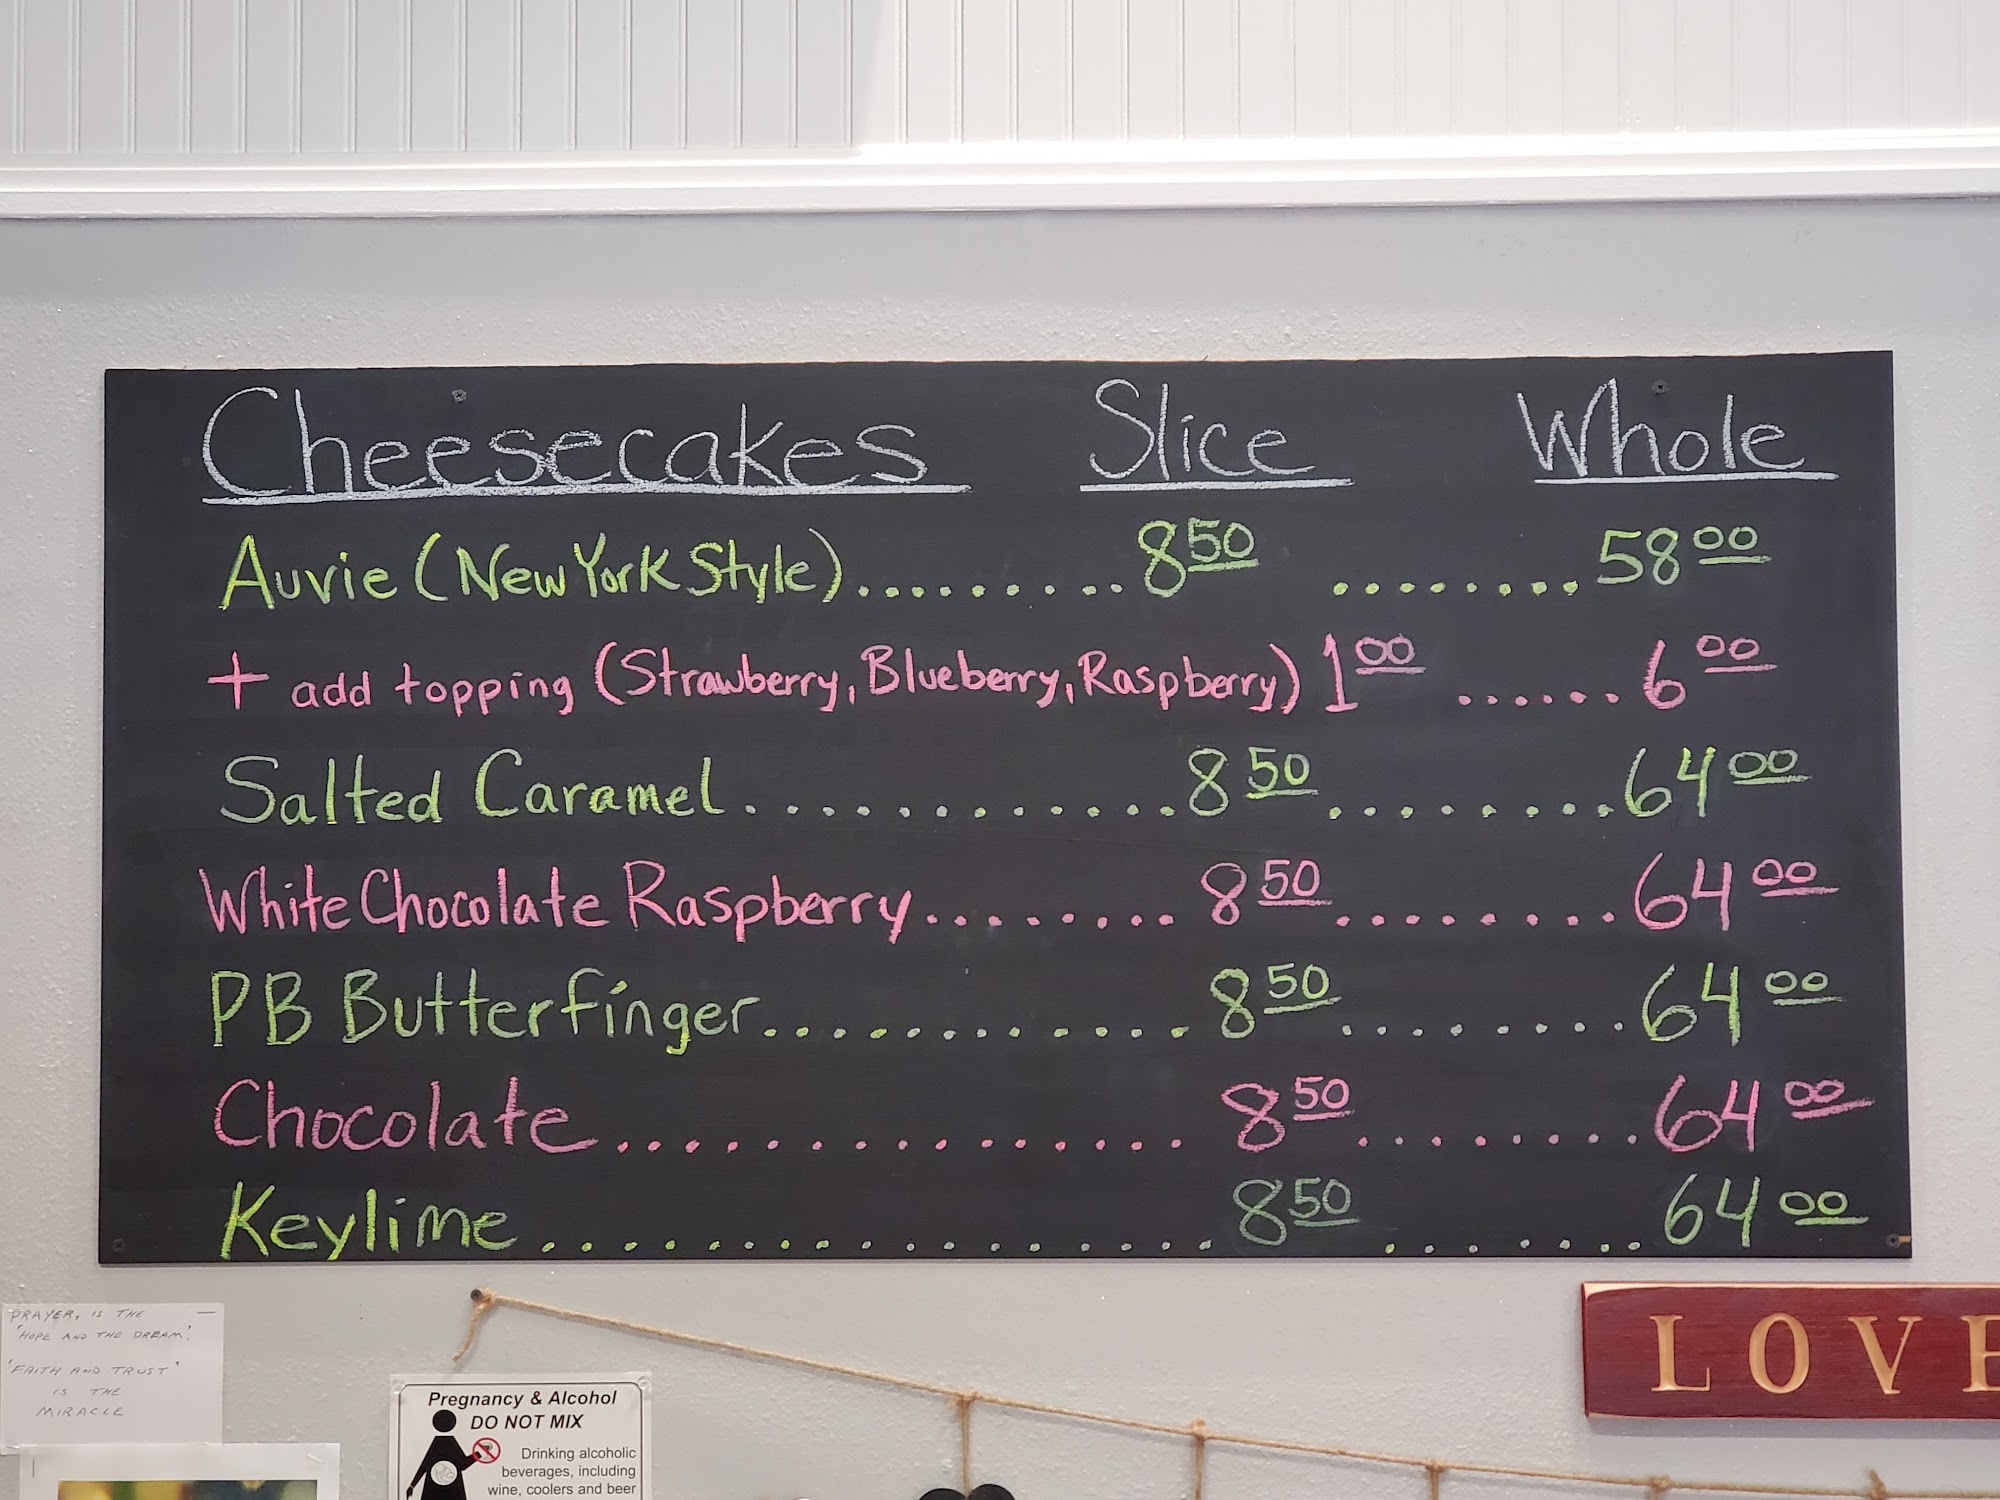 Cheesecakes Slice Whole
Auvie (New York Style)......... 8 50 ........ 58 00
+ add topping (Strawberry, Blueberry, Raspberry) 1 00 ...... 6 00
Salted Caramel............ 8 50 ........ 64 00
White Chocolate Raspberry........ 8 50 ........ 64 00
PB Butterfinger............ 8 50 ........ 64 00
Chocolate............... 8 50 ........ 64 00
Keylime................. 8 50 ...... 64 00
PRAYER, IS THE
'HOPE AND THE DREAM'.
'FAITH AND TRUST'
IS THE
MIRACLE
Pregnancy & Alcohol
DO NOT MIX
Drinking alcoholic
beverages, including
wine, coolers and beer
LOVE